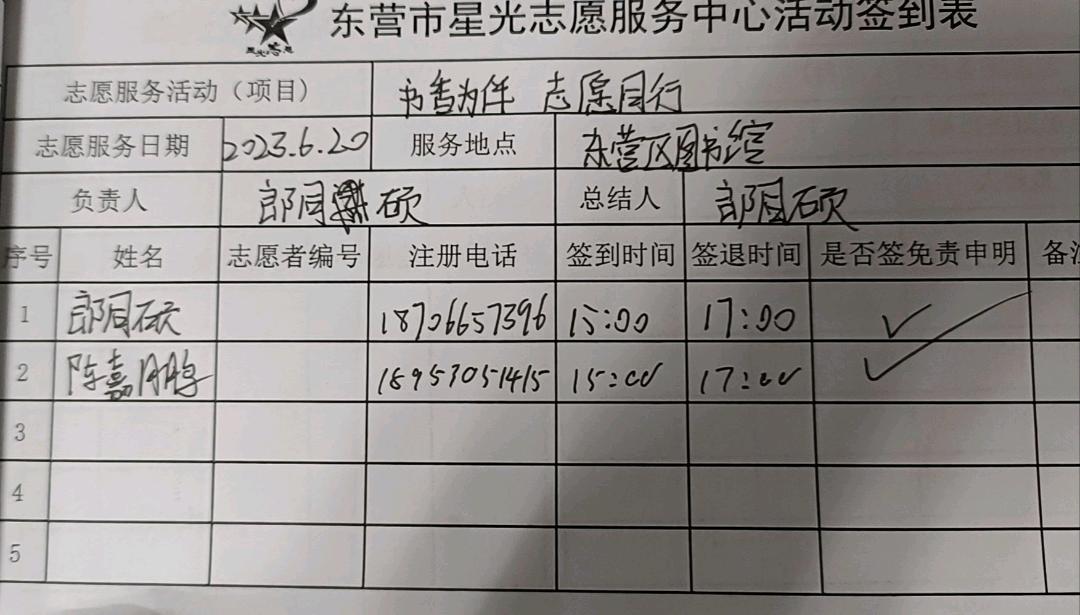 东营市星光志愿服务中心活动签到表
志愿服务活动（项目） 书香为伴 志愿同行
志愿服务日期 2023.6.20 服务地点 东营区图书馆
负责人 郎同硕 总结人 郎同硕
序号 姓名 志愿者编号 注册电话 签到时间 签退时间 是否签免责申明 备注
1 郎同硕 18706657396 15:00 17:00 ✓
2 陈嘉鹏 18953051415 15:00 17:00 ✓
3
4
5